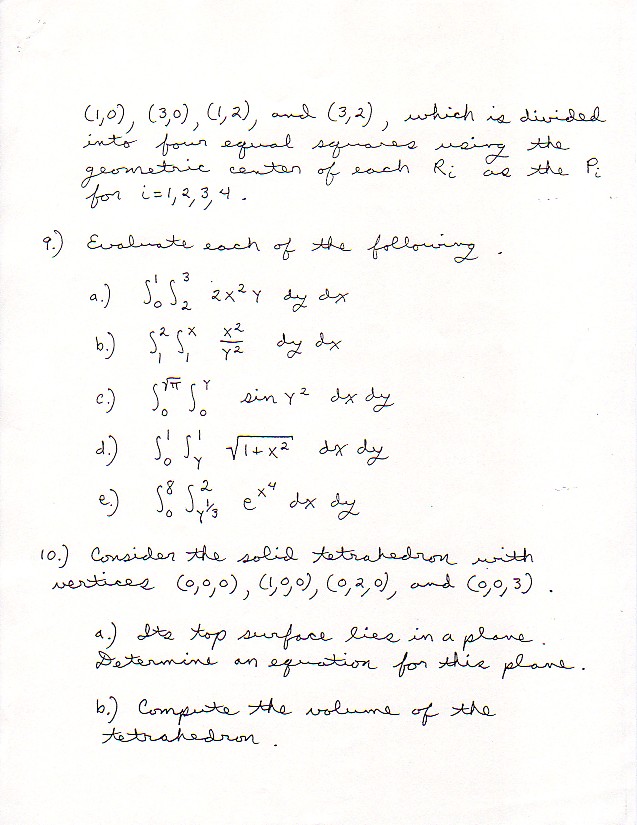 (1,0), (3,0), (1,2), and (3,2), which is divided
into four equal squares using the
geometric center of each Ri as the Pi
for i=1,2,3,4.
9.) Evaluate each of the following.
a.) ∫₀¹ ∫₂³ 2x²y dy dx
b.) ∫₁² ∫₁ˣ x²/y² dy dx
c.) ∫₀^√π ∫₀^y sin y² dx dy
d.) ∫₀¹ ∫_y¹ √(1+x²) dx dy
e.) ∫₀⁸ ∫_{y^{1/3}}² e^{x⁴} dx dy
10.) Consider the solid tetrahedron with
vertices (0,0,0), (1,0,0), (0,2,0), and (0,0,3).
a.) Its top surface lies in a plane.
Determine an equation for this plane.
b.) Compute the volume of the
tetrahedron.